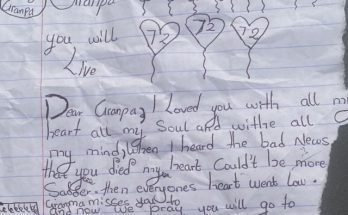 Granpa
Granpa
you will
72 72 72
Live
Dear Granpa, I Loved you with all my
heart all my Soul and withe all
my mind, When I heard the bad News
that you died my heart Could't be more
Sadder then everyones heart went low.
Granma misses you to
and now we pray you will go to